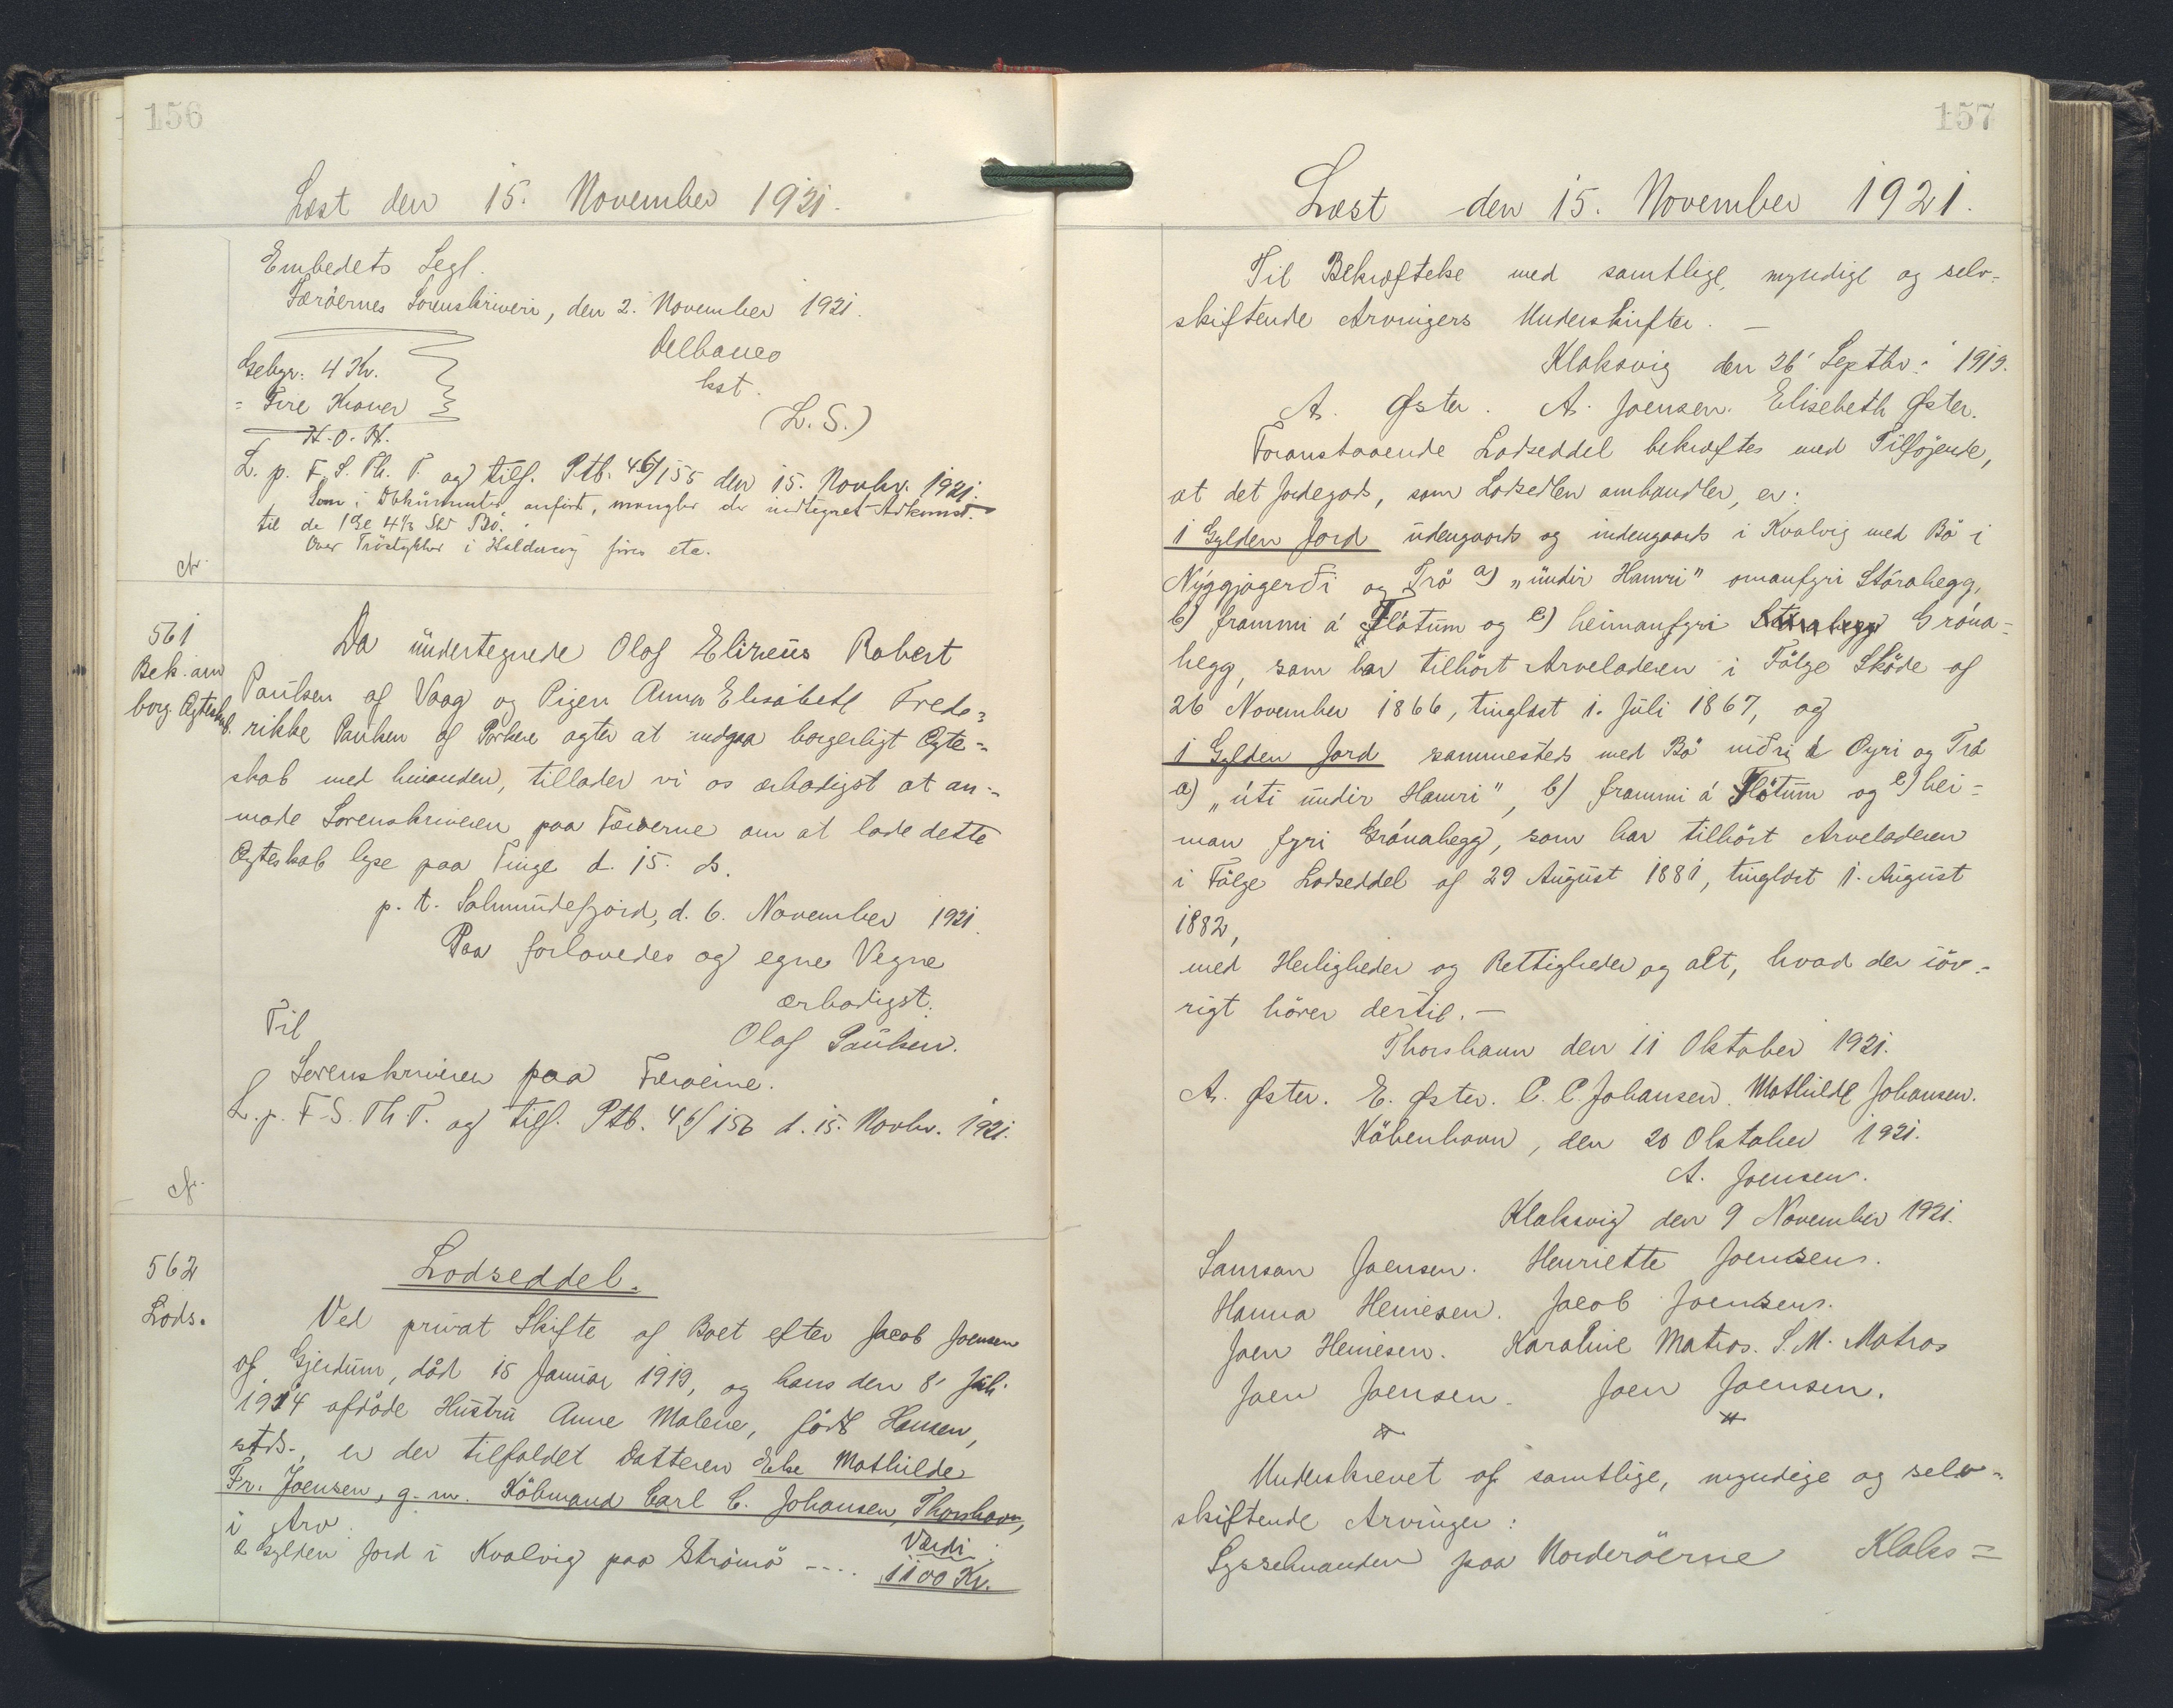 156
Læst den 15. November 1921.
Embedets Segl.
Færöernes Sorenskriveri, den 2. November 1921.
Delbanco
kst.
(L. S.)
Gebyr: 4 Kr.
= Fire Kroner
H. O. H.
L. p. F. S. Th. T. og tilf. Ptb. 46/155 den 15. Novbr. 1921.
Som i Dokumentet anfört, mangler der indtegnet Adkomst
til de 1 Gl 4 2/3 Skd Bö.
Over Tröstykker i Haldersvig föres etc.
561
Bek. om
borg. Ægteskab.
Da undertegnede Olaf Elizeus Robert
Paulsen af Vaag og Pigen Anna Elisabeth Frede=
rikke Paulsen af Porkere agter at indgaa borgerligt Ægte=
skab med hinanden, tillader vi os ærbødigst at an=
mode Sorenskriveren paa Færöerne om at lade dette
Ægteskab lyse paa Tinge d. 15. ds.
p. t. Salmundefjord, d. 6. November 1921.
Paa forlovedes og egne Vegne
ærbødigst.
Olaf Paulsen.
Til
Sorenskriveren paa Færöerne.
L. p. F. S. Th. T. og tilf. Ptb. 46/156 d. 15. Novbr. 1921.
562
Lods.
Lodseddel.
Ved privat Skifte af Boet efter Jacob Joensen
af Gjerdum, död 15 Januar 1919, og hans den 8' Juli
1914 afdöde Hustru Anne Malene, född Hansen,
stds., er der tilfaldet Datteren Else Mathilde
Fr. Joensen, g. m. Köbmand Carl C. Johansen, Thorshavn,
i Arv:
Værdi
2 Gylden Jord i Kvalvig paa Strömö ---. 1100 Kr.
157
Læst den 15. November 1921.
Til Bekræftelse med samtlige, myndige og selv=
skiftende Arvingers Underskrifter. —
Klaksvig den 26' Septbr. 1919.
A. Øster. A. Joensen. Elisebeth Øster.
Foranstaaende Lodseddel bekræftes med Tilföjende,
at det Jordegods, som Lodsedlen omhandler, er:
1 Gylden Jord udengaards og indengaards i Kvalvig med Bö i
Nýggjagerði og Trö a) "undir Hamri" omanfyri Stórahegg,
b) frammi á Fløtum og c) heimanfyri Gróna=
hegg, som har tilhört Arveladeren i Fölge Sköde af
26 November 1866, tinglæst 1. Juli 1867, og
1 Gylden Jord sammesteds med Bö niðri á Oyri og Trö
a) "úti undir Hamri", b) frammi á Fløtum og c) hei=
man fyri Grónahegg, som har tilhört Arveladeren
i Fölge Lodseddel af 29 August 1881, tinglæst 1. August
1882,
med Herligheder og Rettigheder og alt, hvad der iöv=
rigt hörer dertil. —
Thorshavn den 11 Oktober 1921.
A. Øster. E. Øster. C. C. Johansen. Mathilde Johansen.
Köbenhavn, den 20 Oktober 1921.
A. Joensen.
Klaksvig den 9 November 1921.
Samson Joensen. Henriette Joensen.
Hanna Heinesen. Jacob Joensen.
Joen Heinesen. Karoline Matras. S. M. Matras
Joen Joensen. Joen Joensen.
Underskrevet af samtlige, myndige og selv=
skiftende Arvinger:
Sysselmanden paa Norderöerne Klaks=